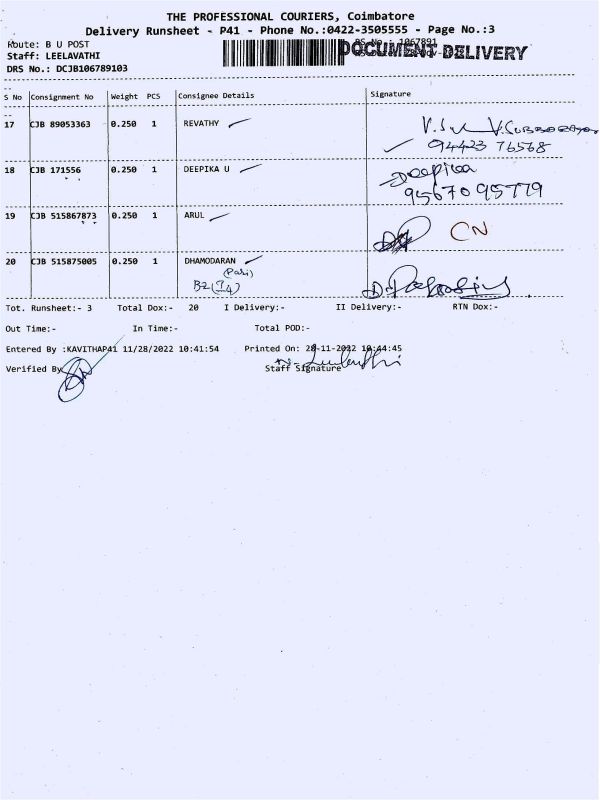 THE PROFESSIONAL COURIERS, Coimbatore
Delivery Runsheet - P41 - Phone No.:0422-3505555 - Page No.:3
Route: B U POST
DOCUMENT DELIVERY
Staff: LEELAVATHI
DRS No.: DCJB106789103
S No Consignment No Weight PCS Consignee Details Signature
17 CJB 89053363 0.250 1 REVATHY V.SUBBARAYAN
94423 76568
18 CJB 171556 0.250 1 DEEPIKA U Deepika
95670 95779
19 CJB 515867873 0.250 1 ARUL CN
20 CJB 515875005 0.250 1 DHAMODARAN
(Pari)
Tot. Runsheet:- 3 Total Dox:- 20 I Delivery:- II Delivery:- RTN Dox:-
Out Time:- In Time:- Total POD:-
Entered By :KAVITHAP41 11/28/2022 10:41:54 Printed On: 28-11-2022 10:44:45
Verified By
Staff Signature